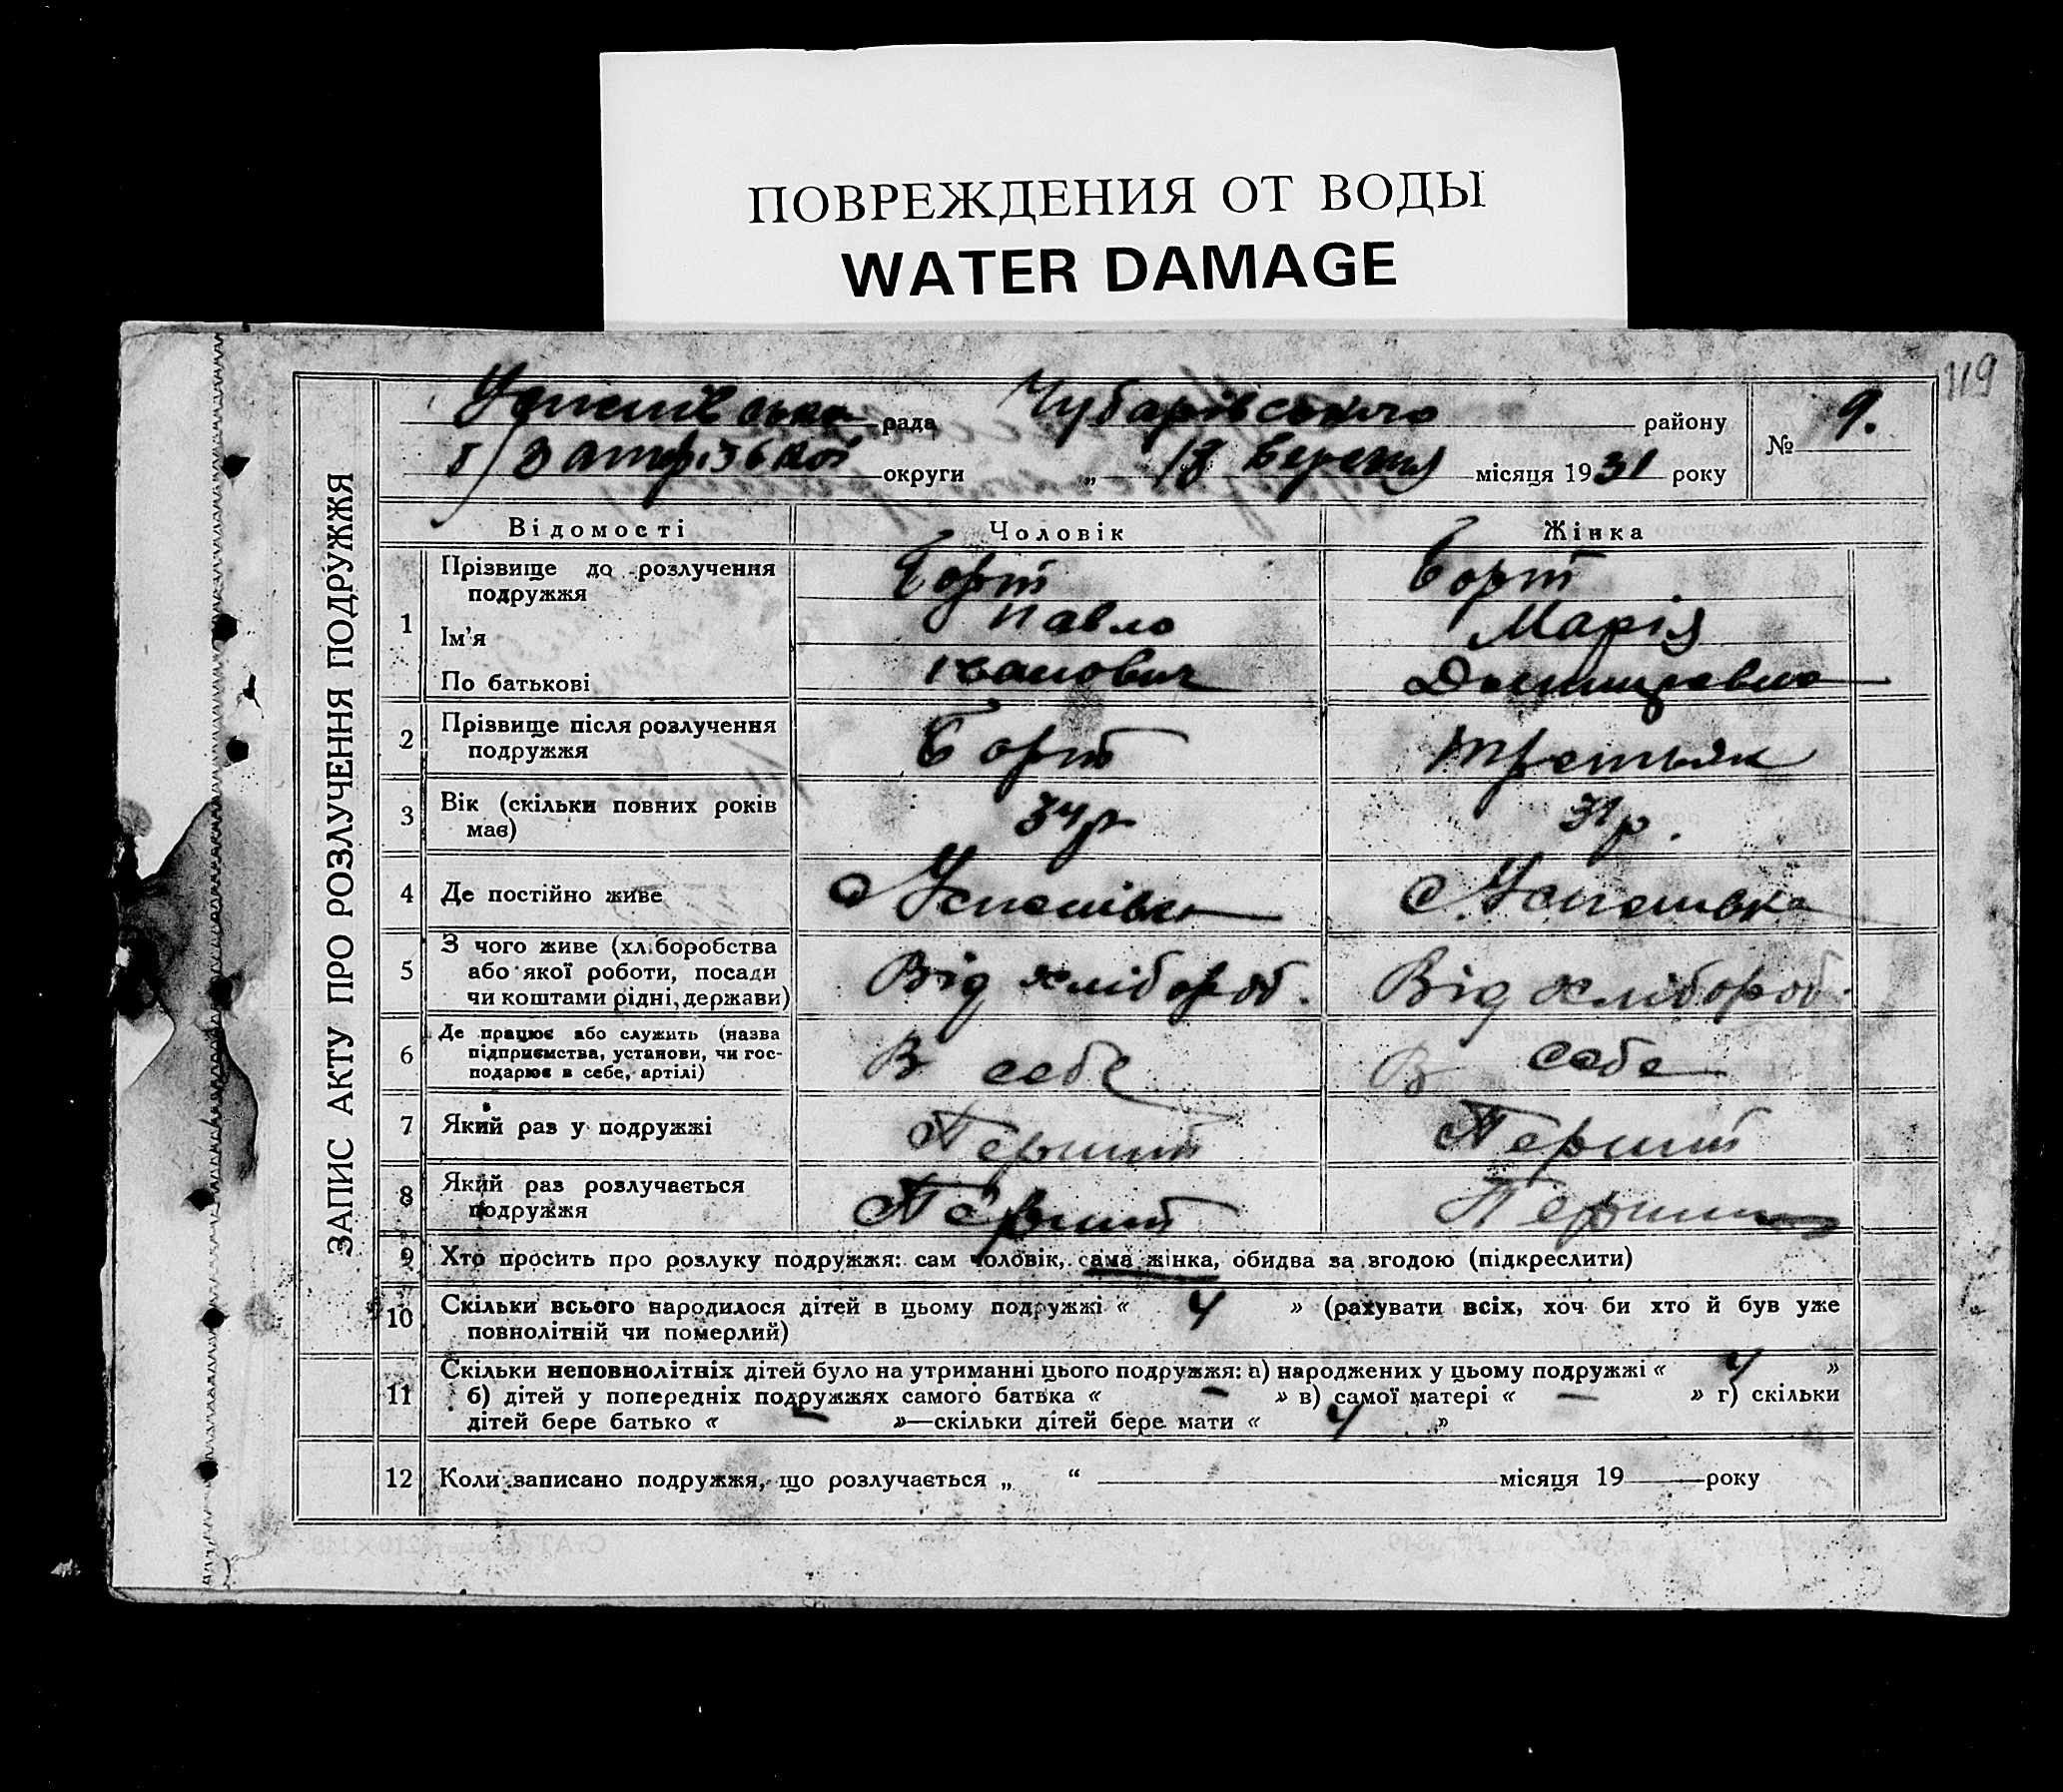 ПОВРЕЖДЕНИЯ ОТ ВОДЫ
WATER DAMAGE
119
Успенівська рада Чубарівського району № 9.
округи „ 18 березня місяця 1931 року
ЗАПИС АКТУ ПРО РОЗЛУЧЕННЯ ПОДРУЖЖЯ
Відомості Чоловік Жінка
1 Прізвище до розлучення подружжя Борт Борт
Ім'я Павло Марія
По батькові Іванович Дмитровна
2 Прізвище після розлучення подружжя Борт Третьяк
3 Вік (скільки повних років має) 34 р 31 р.
4 Де постійно живе с Успенівка с. Успенивка
5 З чого живе (хліборобства
або якої роботи, посади
чи коштами рідні, держави) Від хлібороб. Від хлібороб.
6 Де працює або служить (назва
підприємства, установи, чи гос-
подарює в себе, артілі) В себе В себе
7 Який раз у подружжі Перший Перший
8 Який раз розлучається
подружжя Перший Перший
9 Хто просить про розлуку подружжя: сам чоловік, сама жінка, обидва за згодою (підкреслити)
10 Скільки всього народилося дітей в цьому подружжі « 4 » (рахувати всіх, хоч би хто й був уже
повнолітній чи померлий)
11 Скільки неповнолітніх дітей було на утриманні цього подружжя: а) народжених у цьому подружжі « 4 »
б) дітей у попередніх подружжях самого батька « – » в) самої матері « – » г) скільки
дітей бере батько « – »—скільки дітей бере мати « 4 »
12 Коли записано подружжя, що розлучається „ “ місяця 19 року